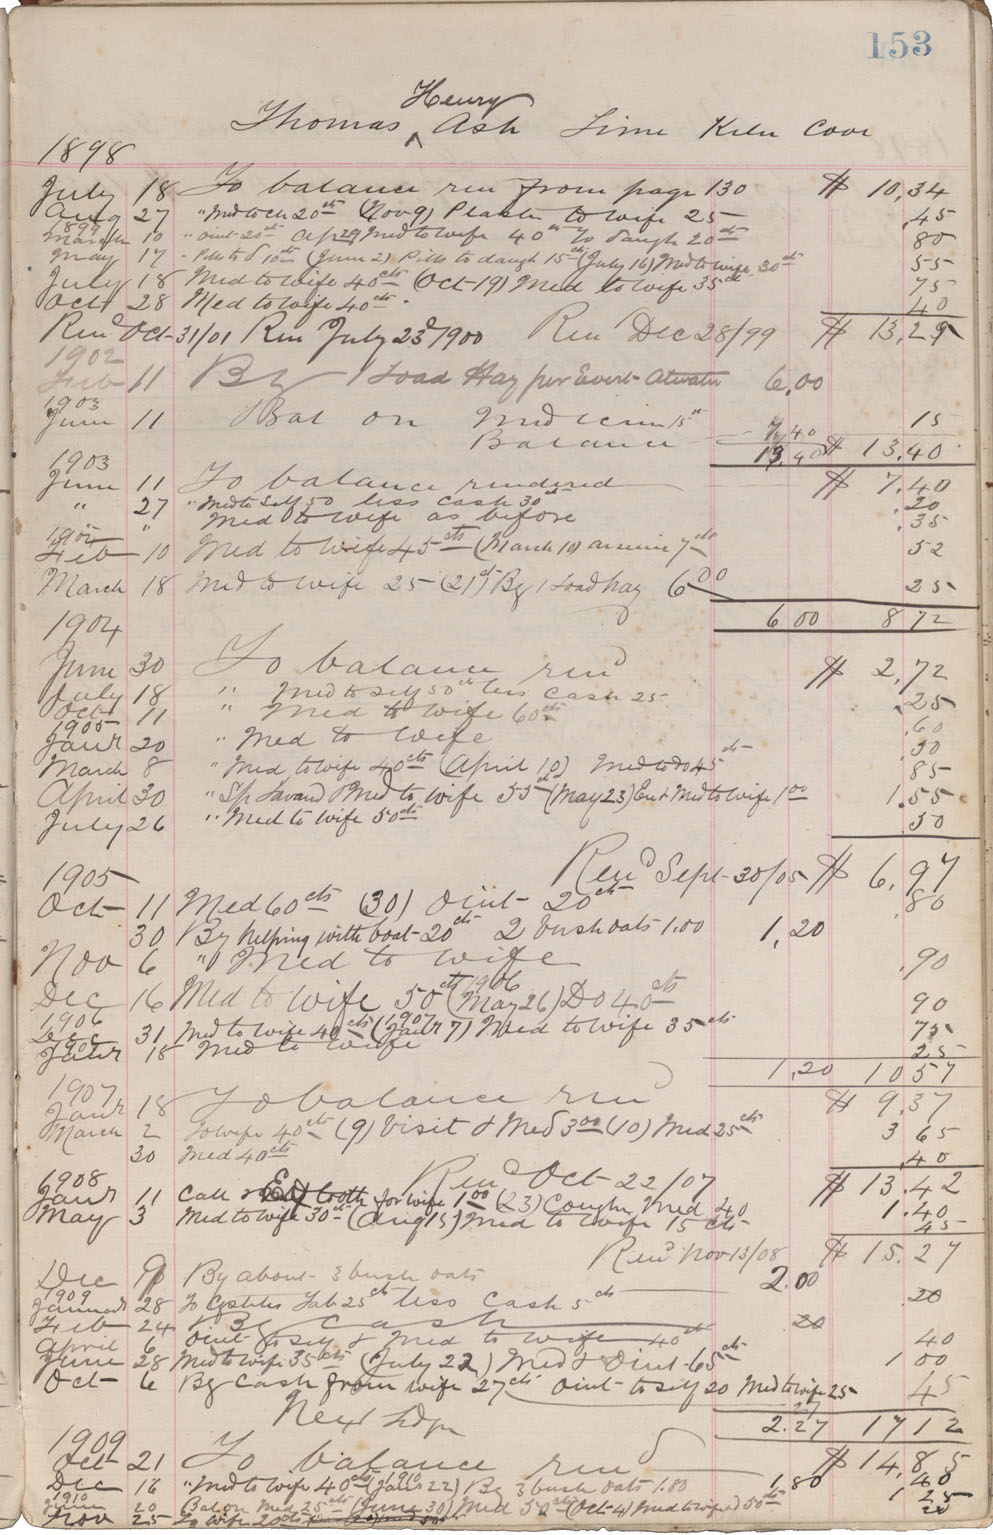 153
Thomas Henry Ash Lime Kiln Cove
1898
July 18 To balance ren from page 130 $ 10,34
Aug 27 " Med to 20cts (Nov 9) Plaster to wife 25 .45
1899
March 10 " oint 20cts Apr 29 Med to wife 40cts To daugh 20cts 80
May 17 " Pills to d 10cts (June 2) Pills to daugh 15cts (July 16) Med to wife 30cts 55
July 18 Med to wife 40cts (Oct 19) Med to wife 35cts 75
Oct 28 Med to wife 40cts 40
Rend Oct 31/01 Ren July 23d 1900 Ren Dec 28/99 $ 13,29
1902
Feb 11 By 1 Load Hay per Evert Atwater 6,00
1903
June 11 Bal on Medicine 15cts 15
Balance 7,40
13,40 $ 13,40
1903
June 11 To balance rendered $ 7,40
" 27 " Med to Self 50 less cash 30cts .20
" Med to wife as before .35
1904
Feb 10 Med to wife 45cts (March 10) 7cts 52
March 18 Med to wife 25 (21st) By 1 Load hay 6.00 25
6 00 8 72
1904
June 30 To balance rend $ 2,72
July 18 " Med to self 50cts less cash 25 .25
Oct 11 " Med to wife 60cts .60
1905
Janr 20 " Med to wife 50
March 8 " Med to wife 40cts (April 10) Med to do 45cts 85
April 30 " Med to wife 55cts (May 23) Med to wife 1.00 1.55
July 26 " Med to wife 50cts .50
Rend Sept 30/05 $ 6,97
1905
Oct 11 Med 60cts (30) oint 20cts .80
30 By helping with boat 20cts 2 bush oats 1.00 1,20
Nov 6 " Med to wife .90
Dec 16 Med to wife 50cts (1906 May 26) Do 40cts 90
1906
31 Med to wife 40cts (1907 Janr 7) Med to wife 35cts 75
Janr 18 Med to wife 25
1,20 10 57
1907
Janr 18 To balance rend $ 9,37
March 2 To wife 40cts (9) Visit & Med 3.00 (10) Med 25cts 3 65
30 Med 40cts .40
Rend Oct 22/07 $ 13.42
1908
Janr 11 Call & Ext tooth for wife 1.00 (23) Cough Med 40 1.40
May 3 Med to wife 30cts (Aug 15) Med to wife 15cts 45
Rend Nov 13/08 $ 15.27
Dec By about 3 bush oats 2.00
1909
28 To 25cts less cash 5cts .20
Feb 24 By Cash 20
April 6 oint to self & Med to wife 40cts 40
June 28 Med to wife 35cts (July 22) Med & Oint 65cts 1 00
Oct 6 By Cash from wife 27cts oint to self 20 Med to wife 25 27 45
Next Ldgr 2.27 17 12
1909
Oct 21 To balance rend $ 14,85
Dec 16 " Med to wife 40cts (1910 Janr 22) By 3 bush oats 1.80 1,80 40
1910
June 20 Bal on Med 25cts (June 30) Med 50cts (Oct 4) Med to wife 50cts 1 25
Nov 25 To wife 20cts 20